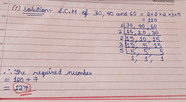 (1) Solution:- L.C.M of 30, 40 and 60 = 2×2×2×3×5
= 120
2 | 30, 40, 60
2 | 15, 20, 30
2 | 15, 10, 15
3 | 15, 5, 15
5 | 5, 5, 5
1, 1, 1
∴ The required number
= 120 + 7
= 127